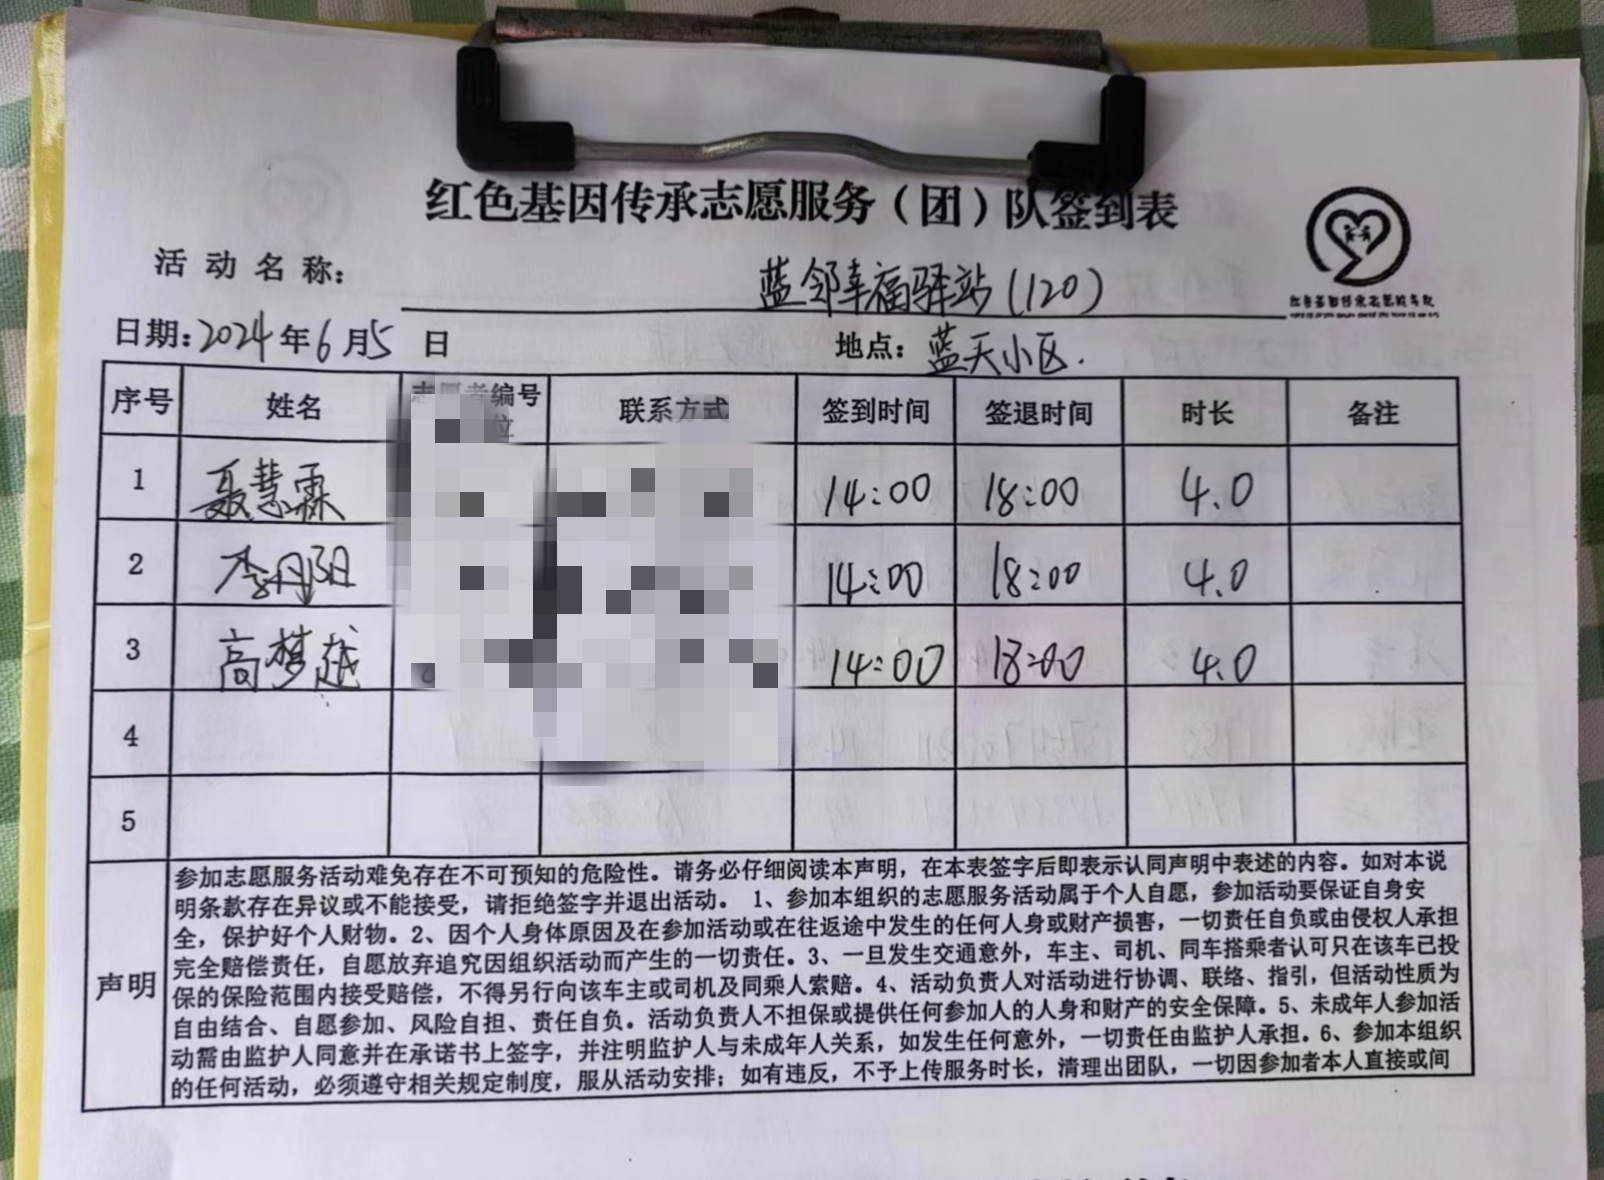 红色基因传承志愿服务（团）队签到表
活动名称： 蓝邻幸福驿站(120)
日期：2024年6月5日 地点：蓝天小区.
序号 姓名 编号 联系方式 签到时间 签退时间 时长 备注
位
1 聂慧霖 14:00 18:00 4.0
2 李丹阳 14:00 18:00 4.0
3 高梦越 14:00 18:00 4.0
4
5
声明
参加志愿服务活动难免存在不可预知的危险性。请务必仔细阅读本声明，在本表签字后即表示认同声明中表述的内容。如对本说
明条款存在异议或不能接受，请拒绝签字并退出活动。 1、参加本组织的志愿服务活动属于个人自愿，参加活动要保证自身安
全，保护好个人财物。2、因个人身体原因及在参加活动或在往返途中发生的任何人身或财产损害，一切责任自负或由侵权人承担
完全赔偿责任，自愿放弃追究因组织活动而产生的一切责任。3、一旦发生交通意外，车主、司机、同车搭乘者认可只在该车已投
保的保险范围内接受赔偿，不得另行向该车主或司机及同乘人索赔。4、活动负责人对活动进行协调、联络、指引，但活动性质为
自由结合、自愿参加、风险自担、责任自负。活动负责人不担保或提供任何参加人的人身和财产的安全保障。5、未成年人参加活
动需由监护人同意并在承诺书上签字，并注明监护人与未成年人关系，如发生任何意外，一切责任由监护人承担。6、参加本组织
的任何活动，必须遵守相关规定制度，服从活动安排；如有违反，不予上传服务时长，清理出团队，一切因参加者本人直接或间